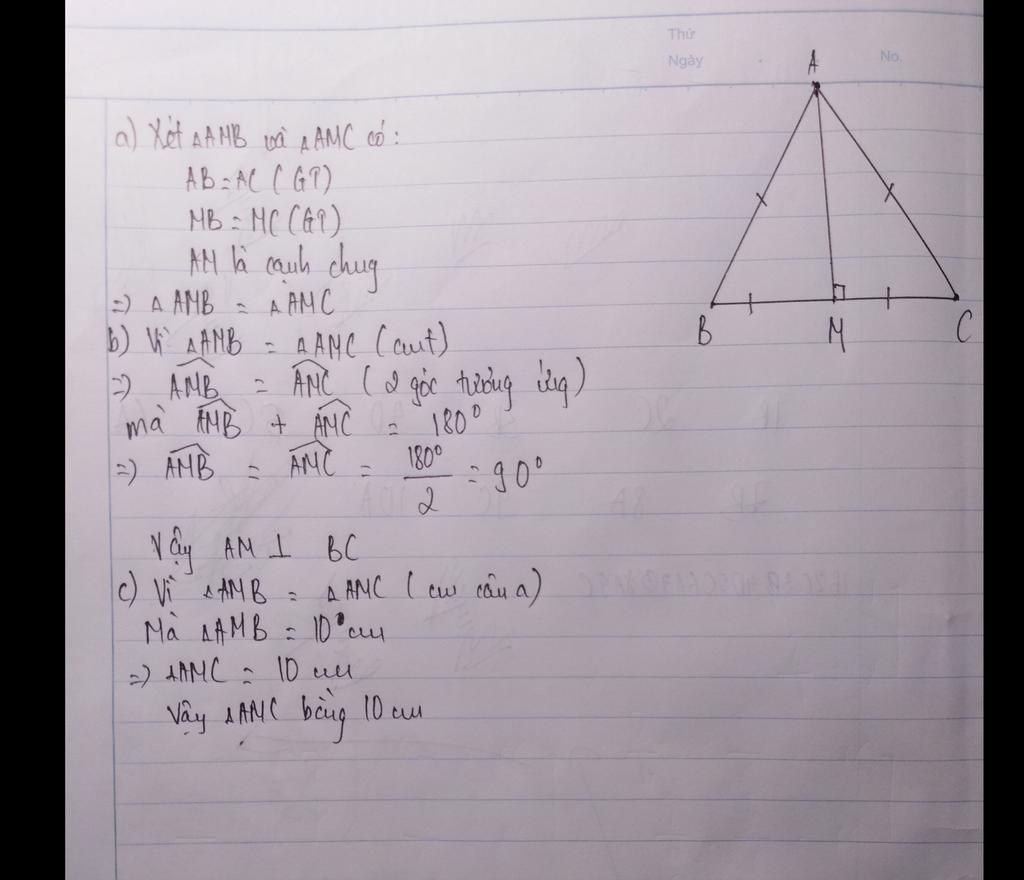 Thứ
Ngày
No.
A
B
M
C
a) Xét △AMB và △AMC có:
AB = AC (GT)
MB = MC (GT)
AM là cạnh chug
=> △AMB = △AMC
b) Vì △AMB = △AMC (cmt)
=> AMB = AMC (2 góc tương ứng)
mà AMB + AMC = 180°
=> AMB = AMC = 180°/2 = 90°
Vậy AM ⊥ BC
c) Vì △AMB = △AMC (cm câu a)
Mà △AMB = 10 cm
=> △AMC = 10 cm
Vậy △AMC bằng 10 cm